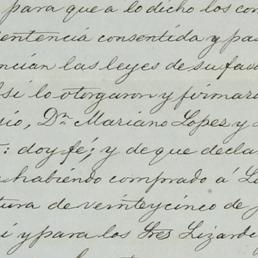 para que a lo dicho los com
entencia consentida y pa
ncian las leyes de su fa
si lo otorgaron y firmar
sio, Dn. Mariano Lopez y
: doy fé; y de que decla
habiendo comprado á L
tura de veinteycinco de
i y para los Sres Lizardi